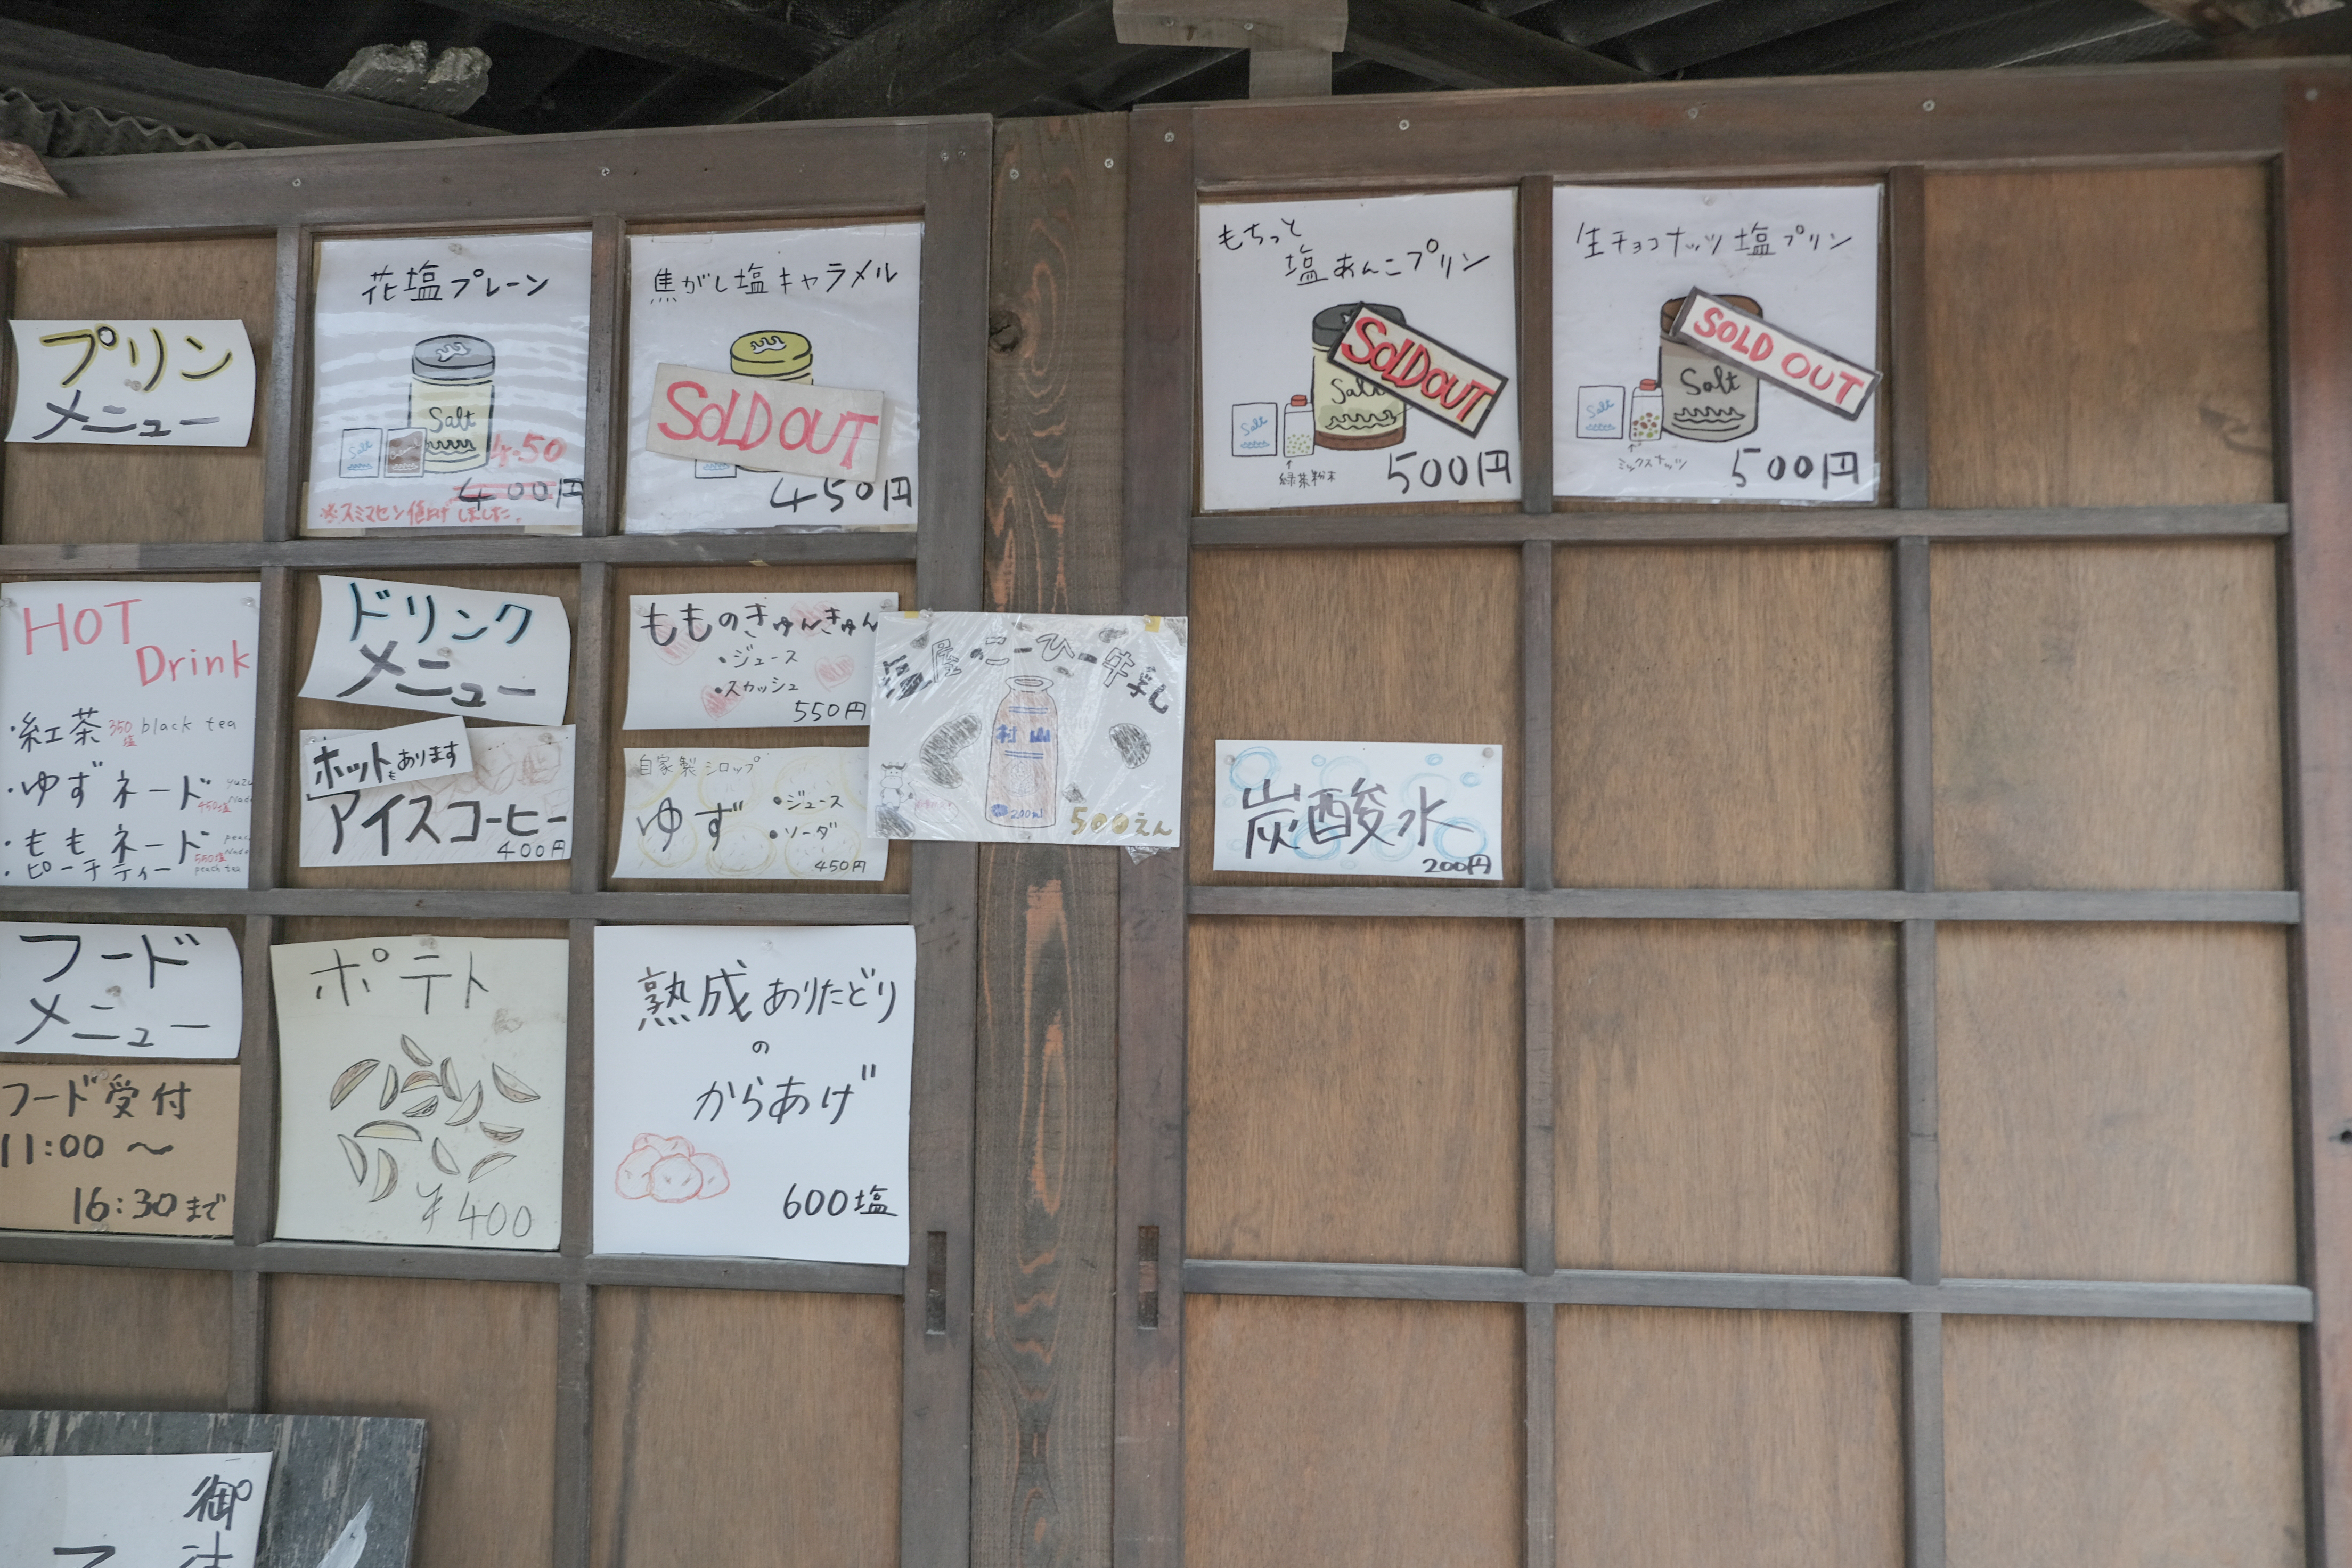 プリン
メニュー
花塩プレーン
Salt
Salt
450
400円
※スミマセン値上げしました。
焦がし塩キャラメル
SOLD OUT
450円
もちっと
塩あんこプリン
SOLD OUT
Salt
Salt
緑茶粉末
500円
生チョコナッツ塩プリン
SOLD OUT
Salt
Salt
ミックスナッツ
500円
HOT
Drink
・紅茶 350塩 black tea
・ゆずネード 450塩
・ももネード 550塩
・ピーチティー peach tea
ドリンク
メニュー
ホットもあります
アイスコーヒー
400円
もものきゅんきゅん
・ジュース
・スカッシュ
550円
自家製シロップ
ゆず
・ジュース
・ソーダ
450円
塩屋のこーひー牛乳
村山
200ml
500えん
炭酸水
200円
フード
メニュー
フード受付
11:00〜
16:30まで
ポテト
¥400
熟成ありたどり
の
からあげ
600塩
御